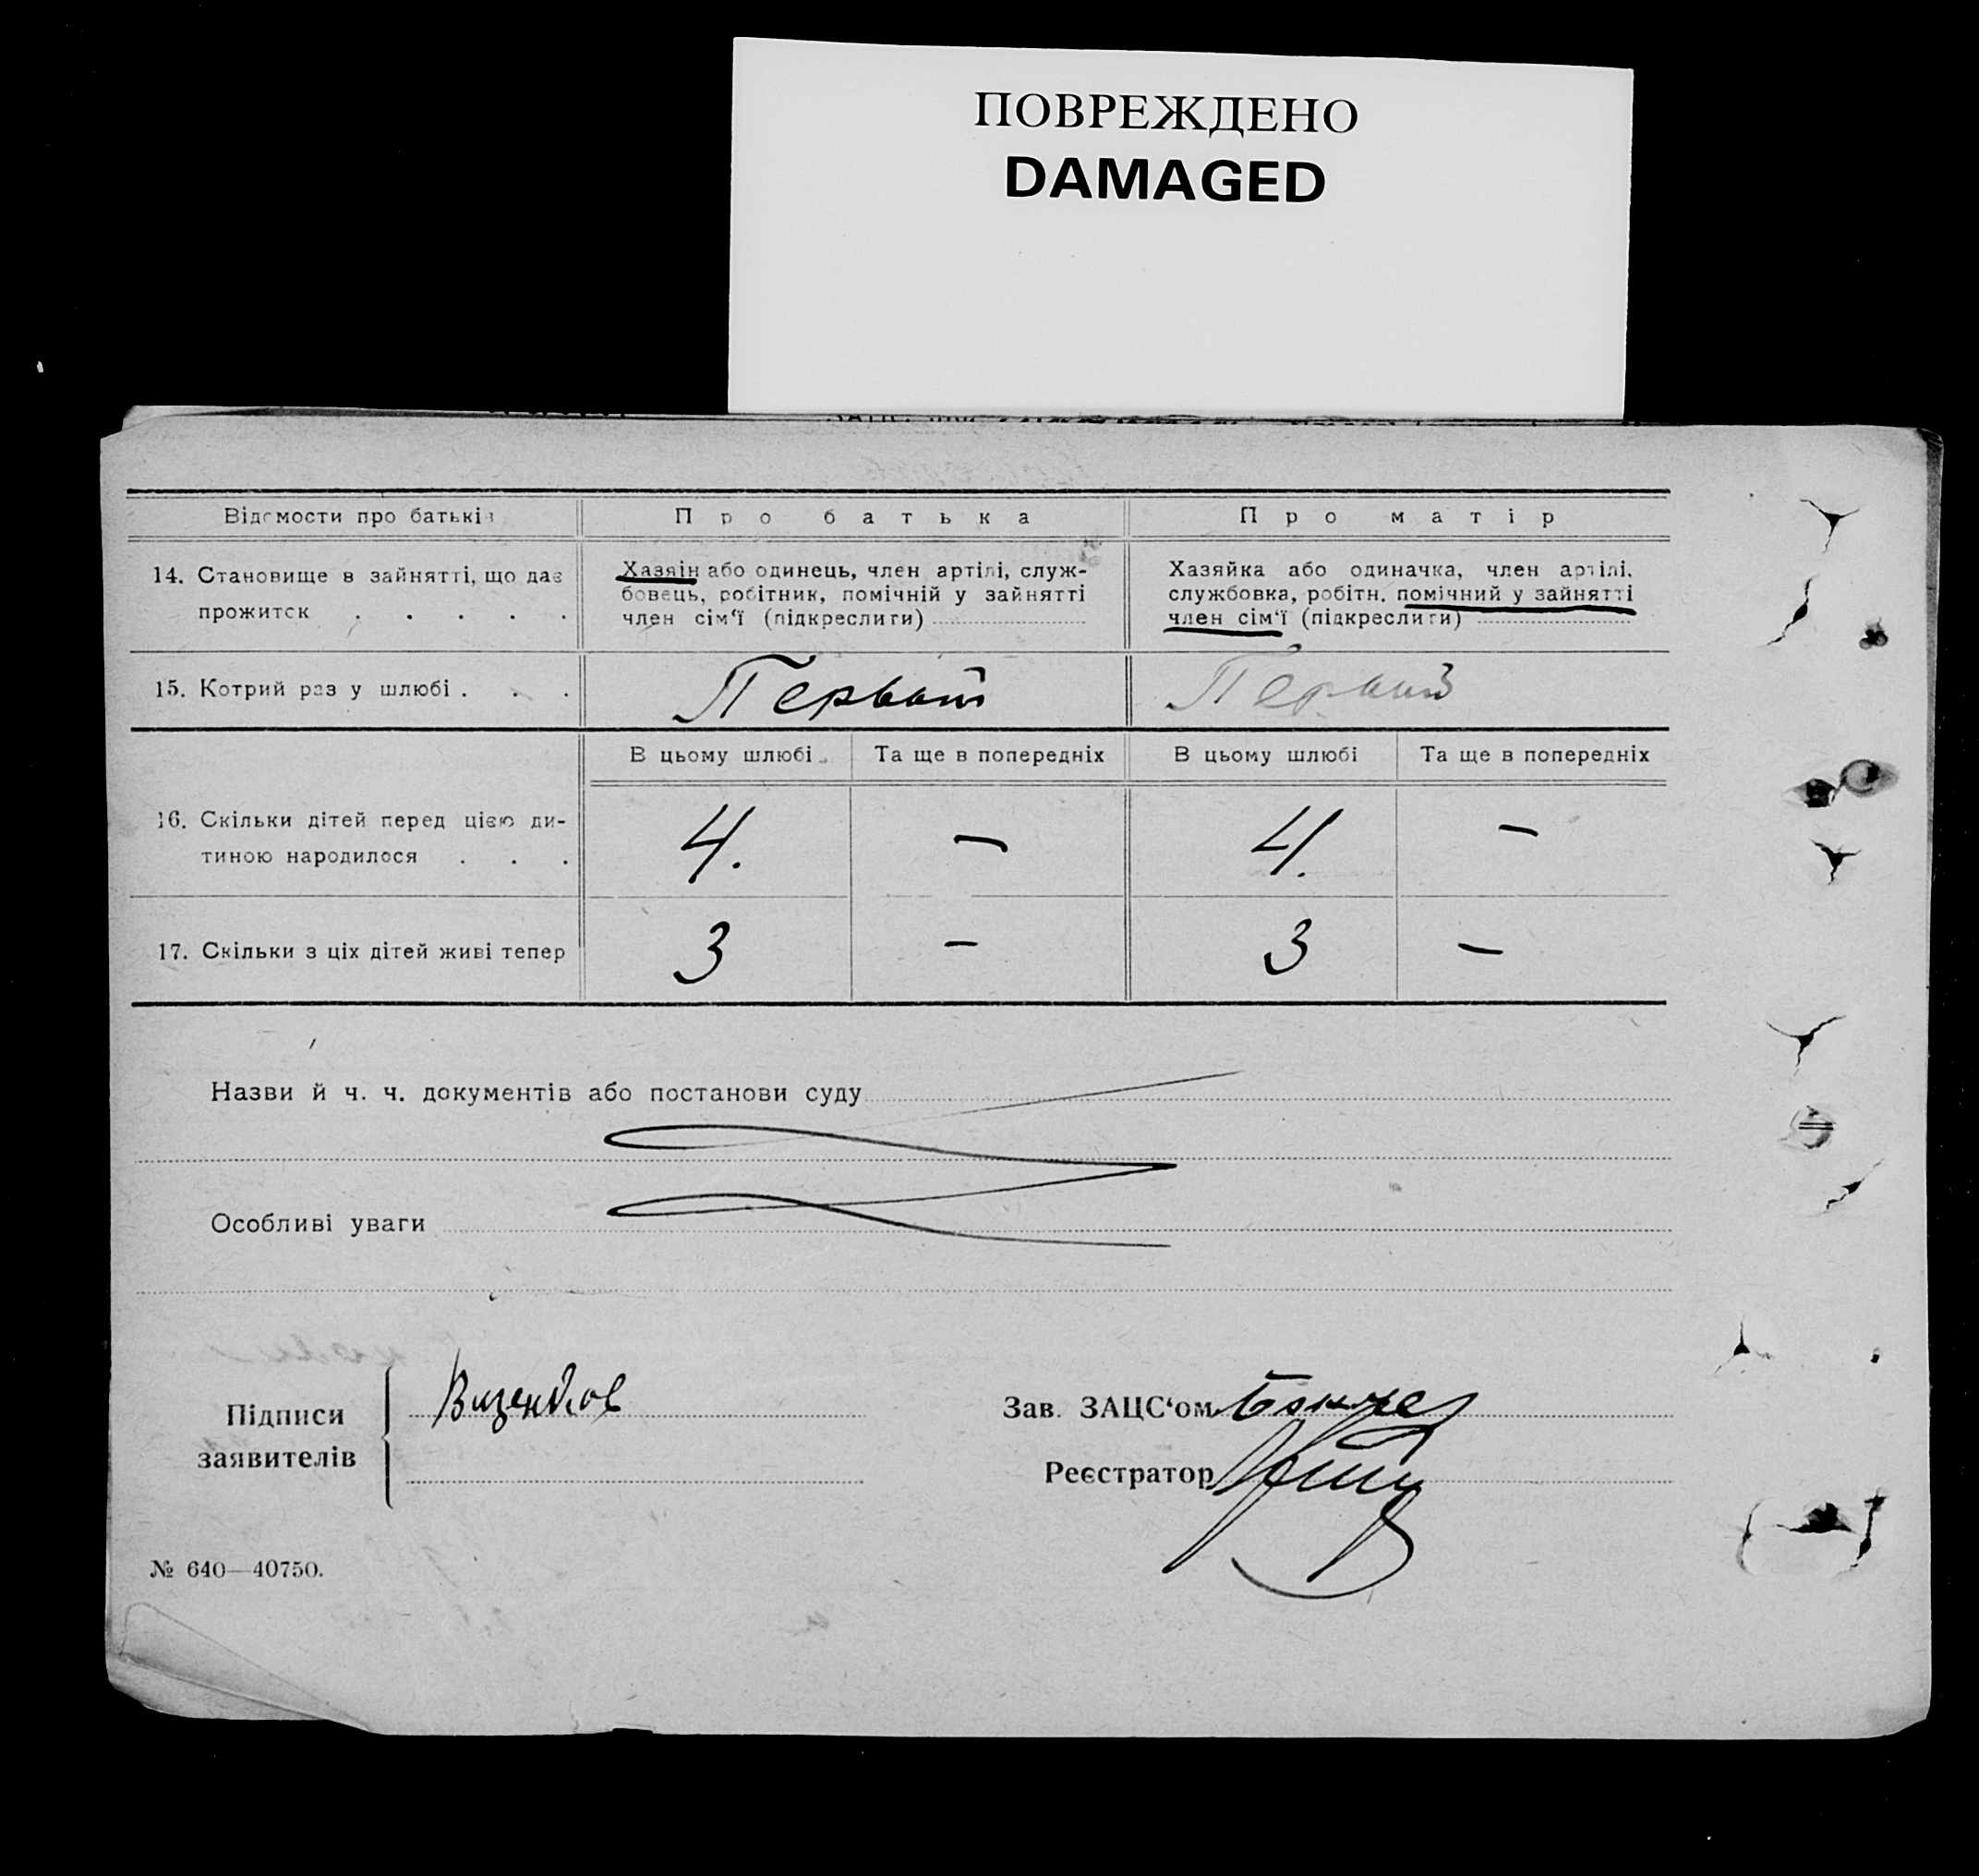 ПОВРЕЖДЕНО
DAMAGED
Відомости про батьків
Про батька
Про матір
14. Становище в зайнятті, що дає
прожиток . . . . .
Хазяін або одинець, член артілі, служ-
бовець, робітник, помічній у зайнятті
член сім'ї (підкреслити)
Хазяйка або одиначка, член артілі,
службовка, робітн. помічний у зайнятті
член сім'ї (підкреслити)
15. Котрий раз у шлюбі . . .
Первый
Первый
В цьому шлюбі
Та ще в попередніх
В цьому шлюбі
Та ще в попередніх
16. Скільки дітей перед цією ди-
тиною народилося . . .
4.
—
4.
—
17. Скільки з ціх дітей живі тепер
3
—
3
—
Назви й ч. ч. документів або постанови суду
Особливі уваги
Підписи
заявителів
Зав. ЗАЦС'ом
Реєстратор
№ 640—40750.